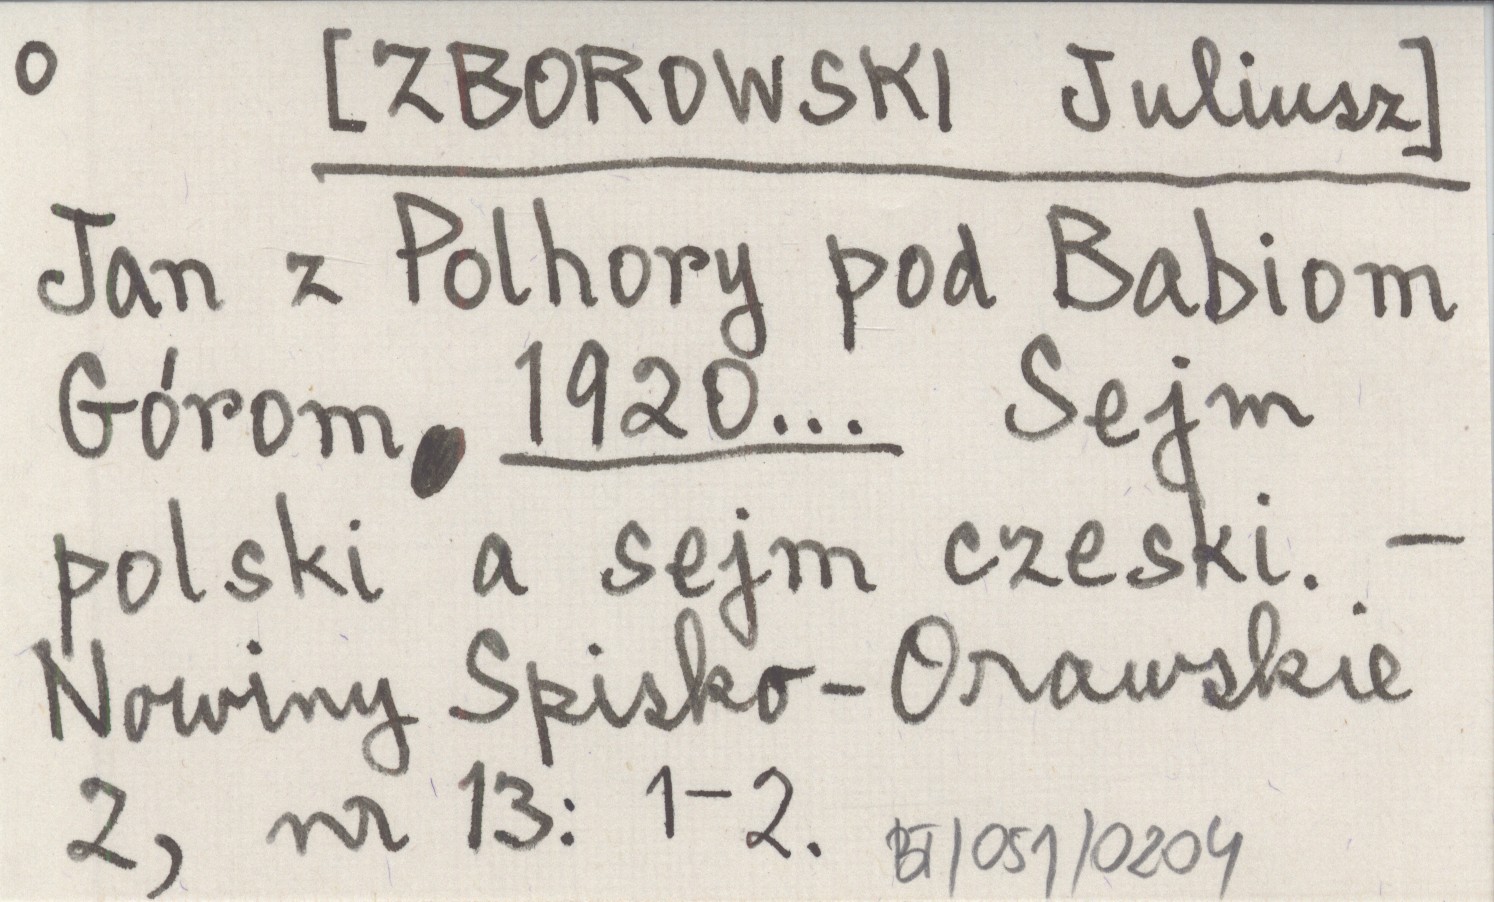 o [ZBOROWSKI Juliusz]
Jan z Polhory pod Babiom
Górom. 1920... Sejm
polski a sejm czeski. –
Nowiny Spisko-Orawskie
2, nr 13: 1–2.
BI/051/0204